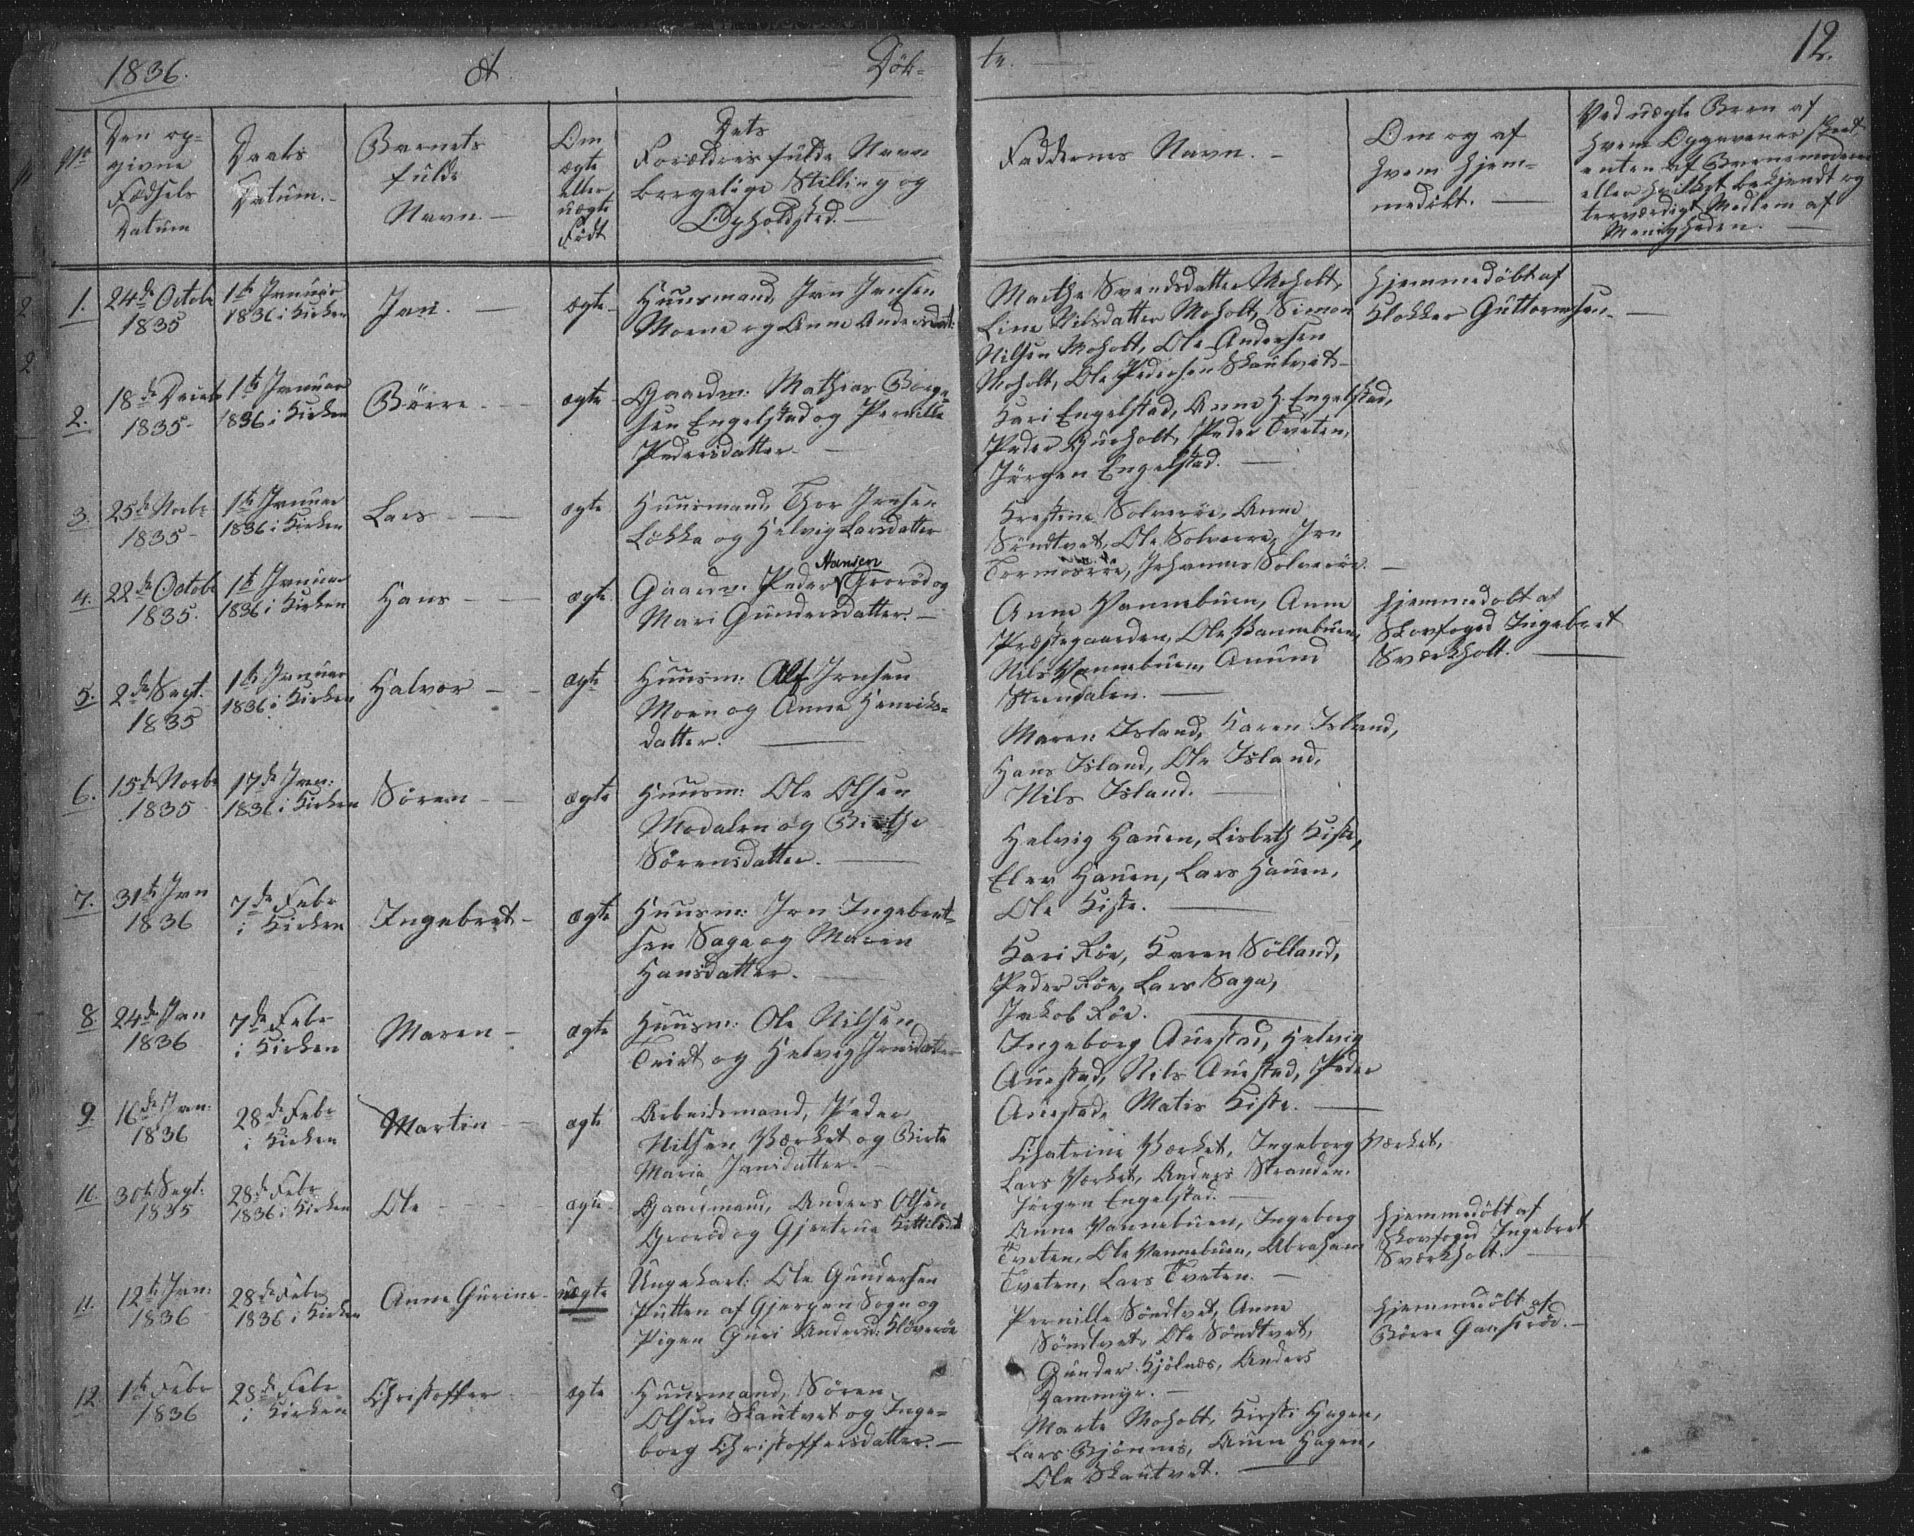 1836. A. Døb-
te. 12.
No
Den op-
givne
Fødsels
Datum
Daabs
Datum.
Barnets
fulde
Navn.
Om
ægte
eller
uægte
Født
Dets
Forældres fulde Navn
borgelige Stilling og
Opholdsted.
Faddernes Navn.
Om og af
hvem hjem-
medøbt.
Ved uægte Børn af
hvem Opgavener skeet
enten af Barnemoderen
eller hvilket bekjendt og
troværdigt Medlem af
Menigheden.
1. 24de Octobr
1835
1te Januar
1836 i Kirken
Jan.
ægte
Huusmand, Jan Jansen
Moene og Anne Andersdat:
Marthe Svendsdatter Moholt,
Line Nilsdatter Moholt, Simon
Nilsen Moholt, Ole Andersen
Moholt, Ole Pedersen Skautvet
Hjemmedøbt af
Klokker Guttormsen.
2. 18de
1835
1te Januar
1836 i Kirken
Børre
ægte
Gaardm: Mathias Børge-
sen Engelstad og Pernille
Pedersdatter
Kari Engelstad, Anne H. Engelstad,
Peder Gurholt, Peder Tveten,
Jørgen Engelstad.
3. 25de Novbr
1835
1te Januar
1836 i Kirken
Lars
ægte
Huusmand, Thor Jensen
Løkka og Helvig Larsdatter
Kirstine Solverøe, Anne
Søndtvet, Ole Solverøe, Jon
Tormosrøe, Johannes Solverøe.
4. 22de Octobr
1835.
1te Januar
1836 i Kirken
Hans
ægte
Gaardm: Peder Hansen Grorød og
Mari Gundersdatter.
Anne Vannebuen, Anne
Præstegaarden, Ole Vannebuen,
Nils Vannebuen, Amund
Steendalen.
Hjemmedøbt af
Skovfoged Ingebret
Sværkholt.
5. 2de Sept.
1835
1te Januar
1836 i Kirken
Halvor
ægte
Huusm: Alf Jensen
Moen og Anne Henriks-
datter.
Maren Island, Karen Island,
Hans Island, Ole Island,
Nils Island.
6. 15de Novbr
1835
17de Jan:
1836 i Kirken
Sören
ægte
Huusm: Ole Olsen
Modalen og Birthe
Sörensdatter.
Helvig Hauen, Lisbeth Kiste,
Elev Hauen, Lars Hauen,
Ole Kiste.
7. 31te Jan
1836
7de Febr
i Kirken
Ingebret
ægte
Huusm: Jon Ingebret-
sen Saga og Maren
Hansdatter.
Kari Røe, Karen Sölland,
Peder Røe, Lars Saga,
Jakob Røe.
8 24de Jan
1836
7de Febr
i Kirken
Maren
ægte
Huusm: Ole Nilsen
Tveit og Helvig Jensdatter
Ingeborg Auestad, Helvig
Auestad, Nils Auestad, Peder
Auestad, Matis Kiste.
9 16de Jan:
1836
28de Febr
i Kirken
Martin
ægte
Arbeidsmand, Peder
Nilsen Værket og Birte
Maria Jansdatter.
Chatrine Værket, Ingeborg Værket,
Lars Værket, Anders Stranden.
Jørgen Engelstad.
10. 30te Sept:
1835
28de Febr
1836 i Kirken
Ole
ægte
Gaardmand, Anders Olsen
Grorød og Gjertrue Kittilsdat
Anne Vannebuen, Ingeborg
Tveten, Ole Vannebuen, Abraham
Tveten, Lars Tveten.
Hjemmedøbt af
Skovfoged Ingebret
Sværkholt.
11. 12te Jan:
1836
28de Febr
1836 i Kirken
Anne Gurine
uægte
Ungekarl: Ole Gundersen
Putten af Gjerpen Sogn og
Pigen Guri Andersd: Kløverøe
Pernille Søndtvet, Anne
Søndtvet, Ole Søndtvet,
Gunder Kjølnes, Anders
Dammyr.
Hjemmedøbt af
Børre Gaaserød.
12. 1te Febr
1836
28de Febr
i Kirken
Christoffer
ægte
Huusmand, Sören
Olsen Skautvet og Inge-
borg Christoffersdatter.
Marte Moholt, Kirsti Hagen,
Lars Bjønnes, Anen Hagen,
Ole Skautvet.